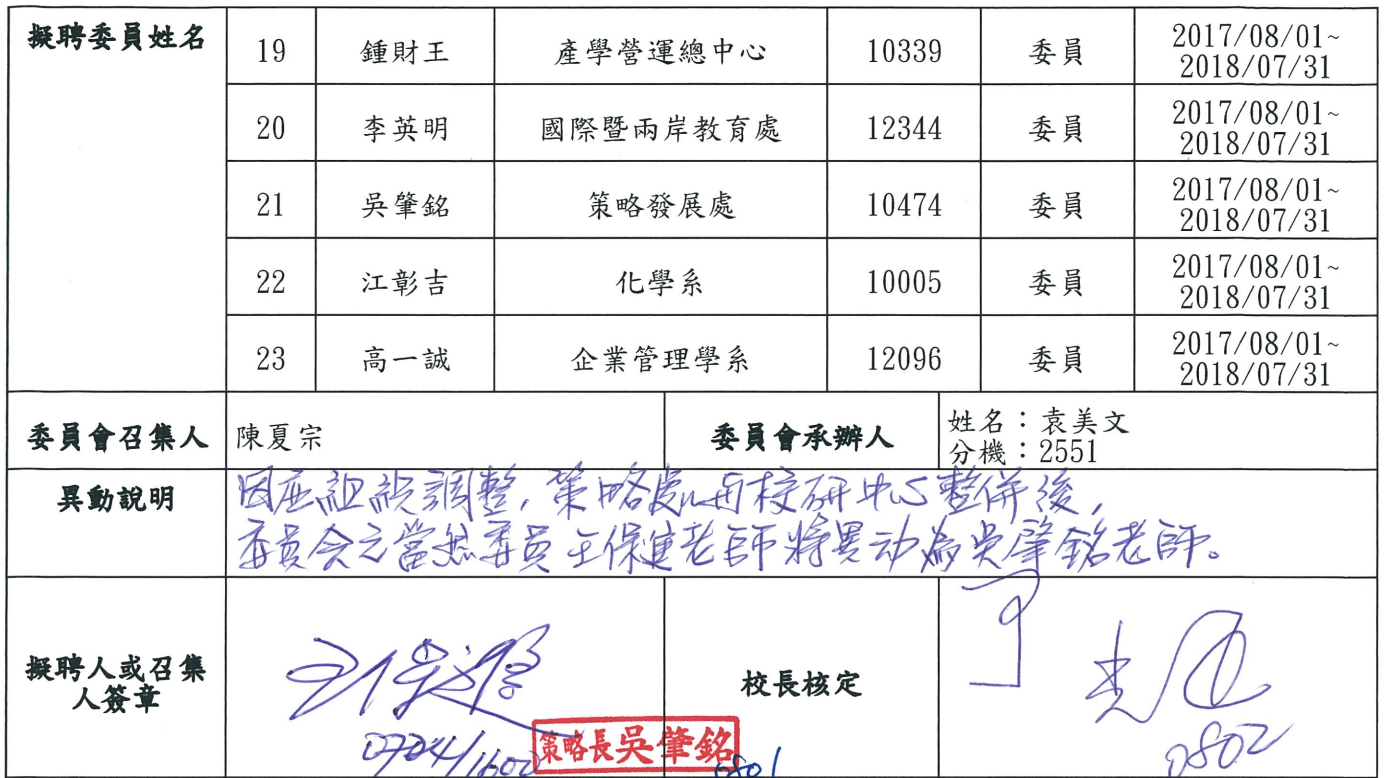 擬聘委員姓名
19 鍾財王 產學營運總中心 10339 委員 2017/08/01~
2018/07/31
20 李英明 國際暨兩岸教育處 12344 委員 2017/08/01~
2018/07/31
21 吳肇銘 策略發展處 10474 委員 2017/08/01~
2018/07/31
22 江彰吉 化學系 10005 委員 2017/08/01~
2018/07/31
23 高一誠 企業管理學系 12096 委員 2017/08/01~
2018/07/31
委員會召集人 陳夏宗 委員會承辦人 姓名：袁美文
分機：2551
異動說明 因應組織調整，策略處與校研中心整併後，
委員会之當然委員王保進老師將異动為吳肇銘老師。
擬聘人或召集
人簽章
校長核定
策略長吳肇銘
0801
0802